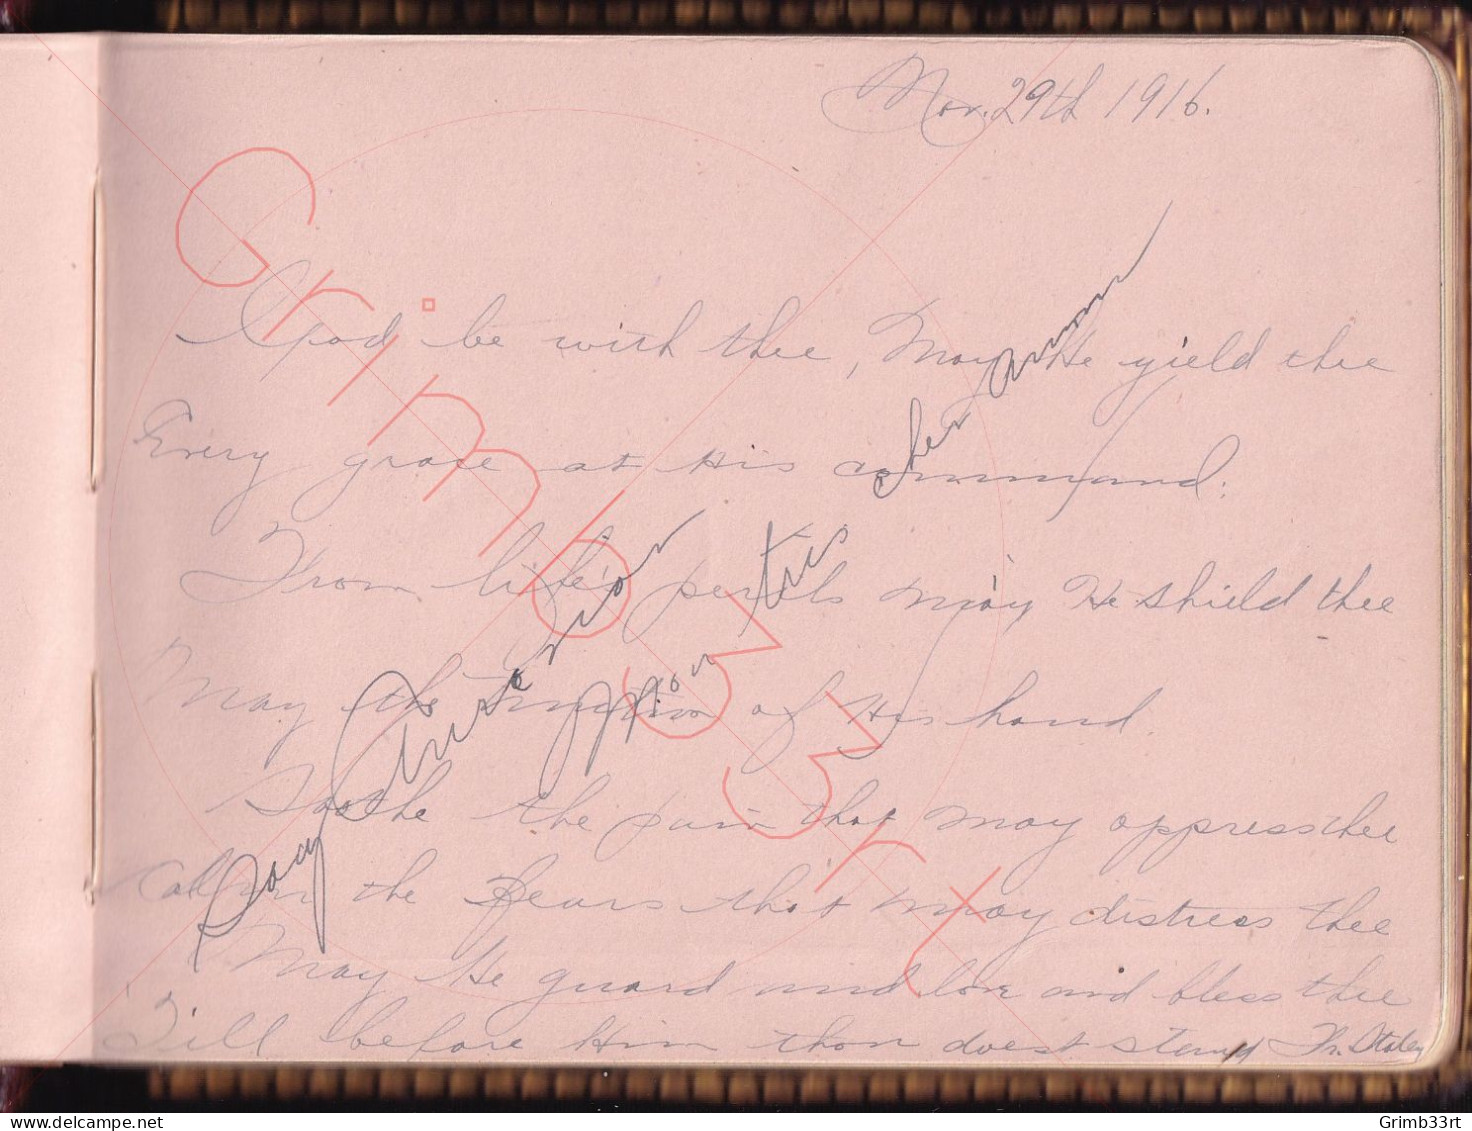 Nov. 29th 1916.
God be with thee, May He yield thee
Every grace at His command.
From life's perils may He shield thee
May the of His hand.
Soothe the pain that may oppress thee
Calm the fears that may distress thee
May He guard and love and bless thee
Till before Him thou doest stand
Grimb33rt
delcampe.net
Grimb33rt